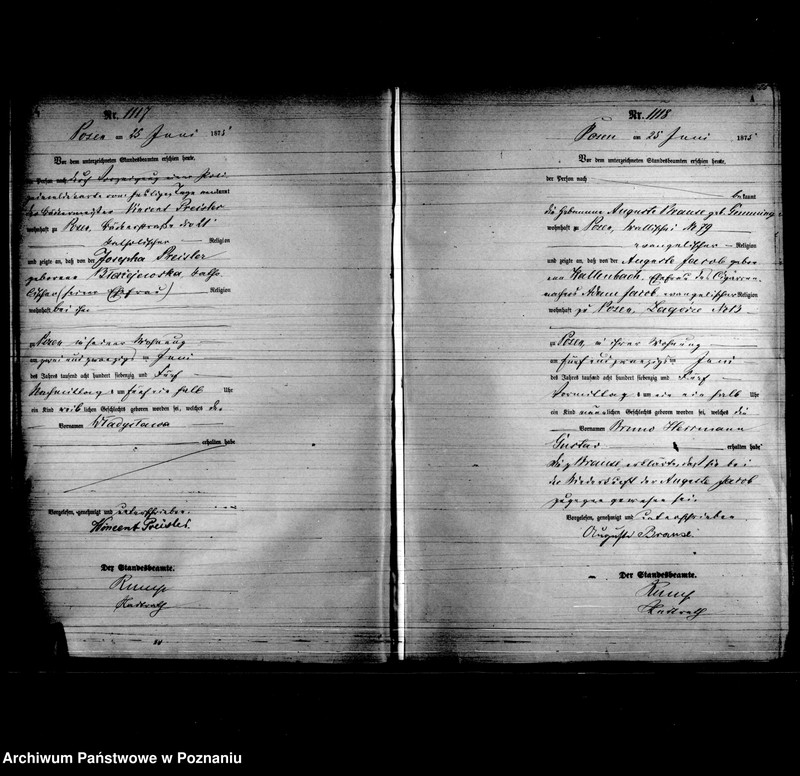 Nr. 1117
Posen am 25 Juni 1875
Vor dem unterzeichneten Standesbeamten erschien heute,
der Person nach
der Bäckermeister Vincent Preisler
wohnhaft zu Posen, Bäckerstraße
katholischer Religion
und zeigte an, daß von der Josepha Preisler
geborene katho
lischer (seiner Ehefrau) Religion
wohnhaft bei ihm
zu Posen in seiner Wohnung
am zwei und zwanzigsten Juni
des Jahres tausend acht hundert siebenzig und Fünf
Nachmittag um fünf ein halb Uhr
ein Kind weiblichen Geschlechts geboren worden sei, welches den
Vornamen Wladyslawa
erhalten habe
Vorgelesen, genehmigt und unterschrieben
Vincent Preisler.
Der Standesbeamte.
Rump
Stadtrath
Nr. 1118
Posen am 25 Juni 1875
Vor dem unterzeichneten Standesbeamten erschien heute,
der Person nach
bekannt
die Hebamme Auguste Brause geb.
wohnhaft zu Posen, Wallischei № 79
evangelischer Religion
und zeigte an, daß von der Auguste Jacob gebo
rene Kallenbach, Ehefrau des Cigarren
machers Jacob, evangelischer Religion
wohnhaft zu Posen,
zu Posen, in ihrer Wohnung
am fünf und zwanzigsten Juni
des Jahres tausend acht hundert siebenzig und Fünf
Vormittag um ein halb Uhr
ein Kind männlichen Geschlechts geboren worden sei, welches die
Vornamen Bruno Herrmann
Gustav erhalten habe
Die p Brause erklärte, daß sie bei
der Niederkunft der Auguste Jacob
zugegen gewesen sei.
Vorgelesen, genehmigt und unterschrieben
Auguste Brause.
Der Standesbeamte.
Rump
Stadtrath
Archiwum Państwowe w Poznaniu